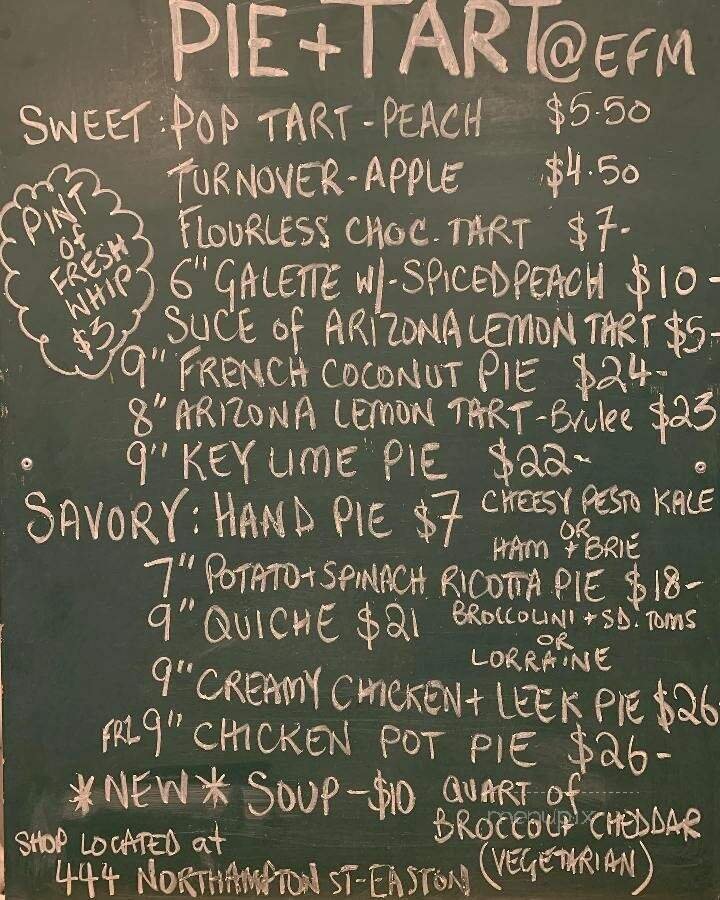 PIE + TART @ EFM
SWEET: POP TART - PEACH $5.50
TURNOVER - APPLE $4.50
FLOURLESS CHOC. TART $7-
6" GALETTE W/- SPICED PEACH $10-
SLICE of ARIZONA LEMON TART $5-
PINT
of
FRESH
WHIP
$3
9" FRENCH COCONUT PIE $24-
8" ARIZONA LEMON TART - Brulee $23
9" KEY LIME PIE $22-
SAVORY: HAND PIE $7 CHEESY PESTO KALE
OR
HAM + BRIE
7" POTATO + SPINACH RICOTTA PIE $18-
9" QUICHE $21 BROCCOLINI + SD. TOMS
OR
LORRAINE
9" CREAMY CHICKEN + LEEK PIE $26
FRI 9" CHICKEN POT PIE $26-
*NEW* SOUP - $10 QUART of
BROCCOLI CHEDDAR
(VEGETARIAN)
SHOP LOCATED at
444 NORTHAMPTON ST - EASTON
menupix